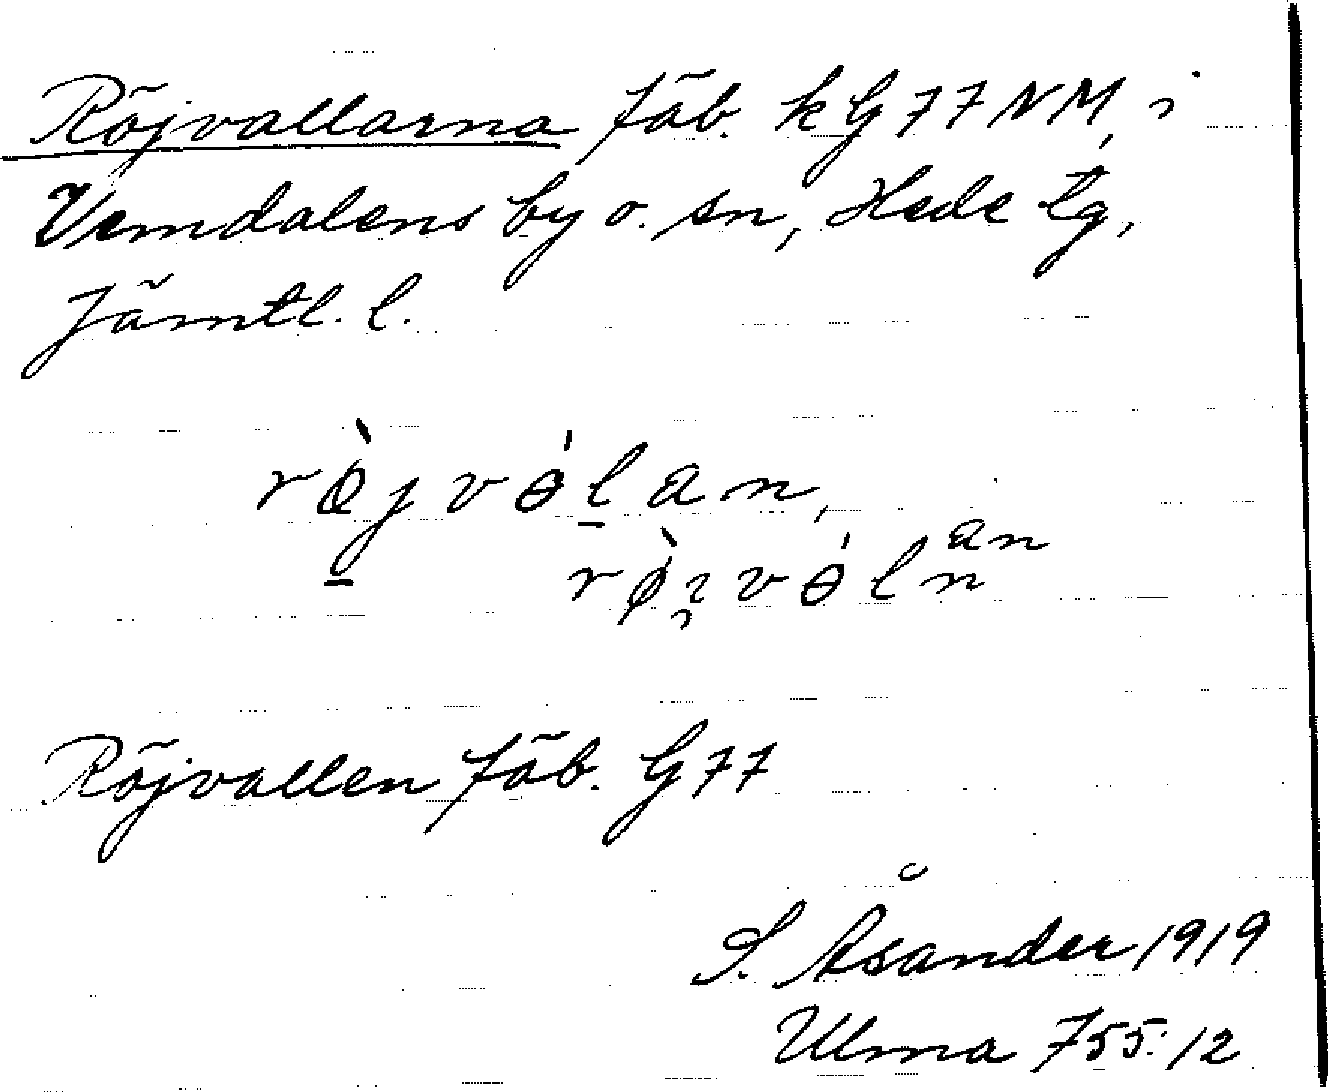 Röjvallarna fäb. k G77NM, i
Vemdalens by o. sn, Hede tg,
Jämtl. l.
rø̀jvɵ́lan,
rø̀ı̨vɵ́ln an
Röjvallen fäb. G77
S. Åsander 1919
Ulma 755:12